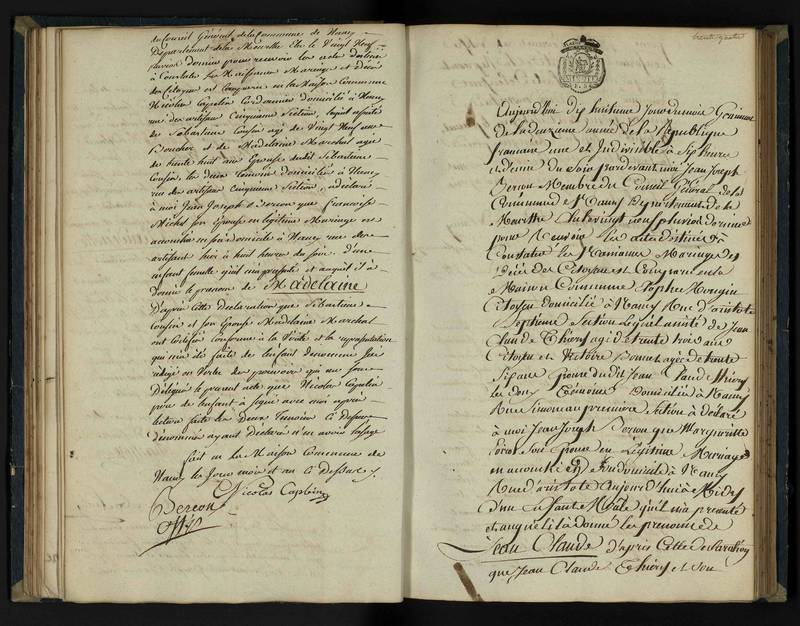 du Conseil Général de la Commune de Nancy
Département de la Meurthe Elu le Vingt Neuf
pluviose dernier pour recevoir les actes destinés
à Constater les Naissances Mariages et décès
des Citoyens est Comparu en la Maison Commune
Nicolas Capelin Cordonnier domicilié à Nancy
rue des artisans cinquieme Section, lequel assisté
de Sébastien Confin agé de Vingt Neuf ans
Boucher et de Madelaine Marchal agée
de trente huit ans Epouse dudit Sébastien
Confin, les deux Temoins domiciliés à Nancy
rue des artisans cinquieme Section, a déclaré
à moi Jean Joseph Berson que françoise
Michel son Epouse en légitime Mariage est
accouchée en son domicile à Nancy rue des
artisans hier à huit heures du soir d'une
enfant femelle qu'il m'a présenté et auquel il a
donné le prenom de Madelaine
D'après Cette Déclaration que Sébastien
Confin et son Epouse Madelaine Marchal
ont Certifié conforme à la Vérité et la représentation
qui m'a été faite de l'enfant denommé J'ai
rédigé en Vertu des pouvoirs qui me sont
Délégués le present acte que Nicolas Capelin
père de l'enfant à signé avec moi après
lecture faite les Deux Temoins Ci Dessus
dénommés ayant Déclaré n'en avoir l'usage
fait en la Maison Commune de
Nancy les Jour mois et an Ci Dessus
Nicolas Caplein
Berson
off. p.
trente quatre
Aujourd'hui dix huitieme Jour du mois Germinal
de la deuxieme année de la République
francaise une et Indivisible à Six heures
et demie du Soir pardevant moi Jean Joseph
Berson Membre du Conseil Général de la
Commune de Nancy Département de la
Meurthe Elu le vingt neuf pluviose dernier
pour Recevoir les actes destinés à
Constater les Naissances Mariages et
Décès des Citoyens est Comparu en la
Maison Commune Tophe Mougin
Citoyen domicilié à Nancy Rue d'aristote
Septieme Section Lequel assisté de Jean
Claude Thiery agé de trente trois ans
Citoyen et Victoire agée de trente
Six ans Epouse dudit Jean Claude Thiery
les deux Témoins Domiciliés à Nancy
Rue premiere Section à déclaré
à moi Jean Joseph Berson que Margueritte
son Epouse en Légitime Mariage
est accouchée en son domicile à Nancy
Rue d'aristote Aujourd'hui à Midy
d'un Enfant Mâle qu'il m'a presenté
et auquel il à Donné les prenoms de
Jean Claude d'après Cette declaration
que Jean Claude Thiery et son